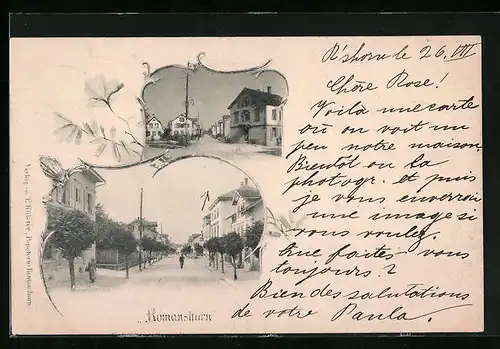 R'shorn le 26. VIII
Chère Rose!
Voilà une carte
où on voit un
peu notre maison.
Bientôt on la
photogr. et puis
je vous enverrai
une image si
vous voulez.
Que faites-vous
toujours?
Bien des salutations
de votre Paula.
Romanshorn
Verlag Papeterie Romanshorn.